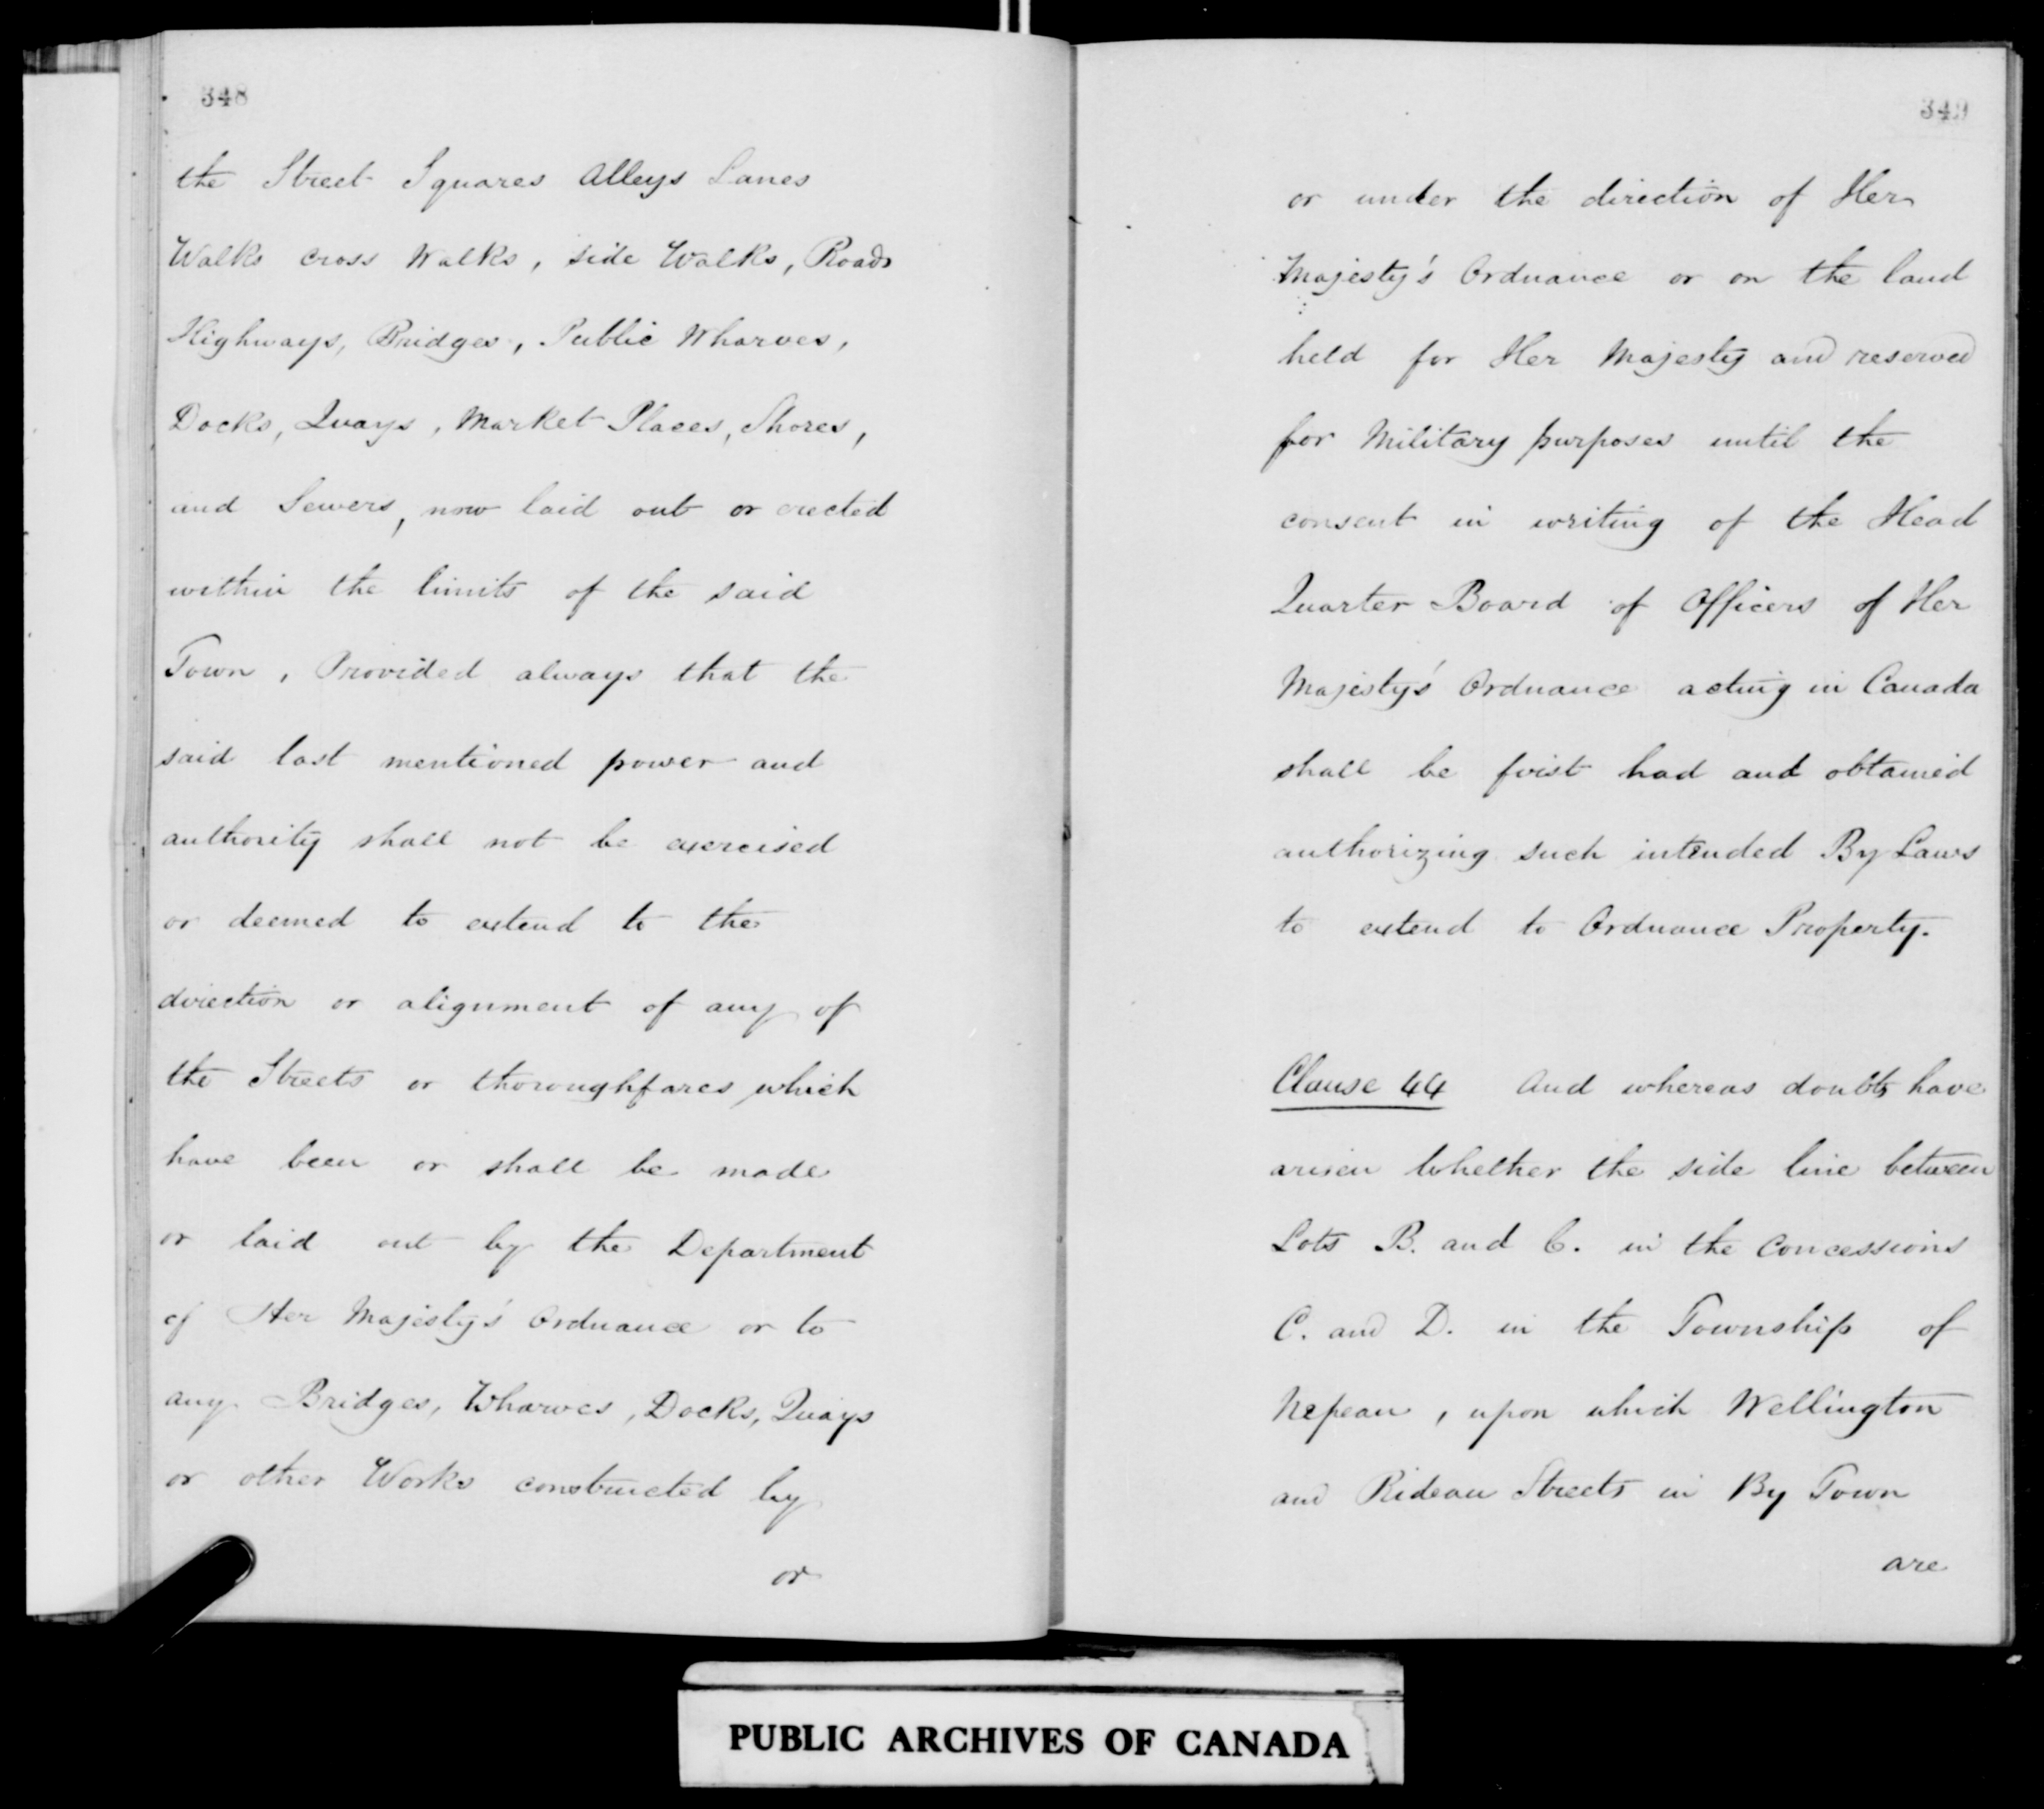 348
the Street Squares Alleys Lanes
Walks cross Walks, side Walks, Roads
Highways, Bridges, Public Wharves,
Docks, Quays, Market Places, Shores,
and Sewers, now laid out or erected
within the limits of the said
Town, Provided always that the
said last mentioned power and
authority shall not be exercised
or deemed to extend to the
direction or alignment of any of
the Streets or thoroughfares which
have been or shall be made
or laid out by the Department
of Her Majesty's Ordnance or to
any Bridges, Wharves, Docks, Quays
or other Works constructed by
or
349
or under the direction of Her
Majesty's Ordnance or on the land
held for Her Majesty and reserved
for Military purposes until the
consent in writing of the Head
Quarter Board of Officers of Her
Majesty's Ordnance acting in Canada
shall be first had and obtained
authorizing such intended By Laws
to extend to Ordnance Property.
Clause 44 And whereas doubts have
arisen Whether the side line between
Lots B. and C. in the Concessions
C. and D. in the Township of
Nepean, upon which Wellington
and Rideau Streets in By Town
are
PUBLIC ARCHIVES OF CANADA